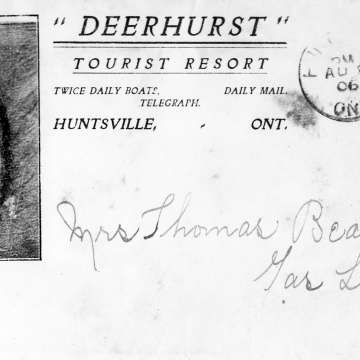 " DEERHURST "
TOURIST RESORT
TWICE DAILY BOATS. DAILY MAIL.
TELEGRAPH.
HUNTSVILLE, - ONT.
PM
AU
06
ON
Mrs Thomas Bea
Gas L